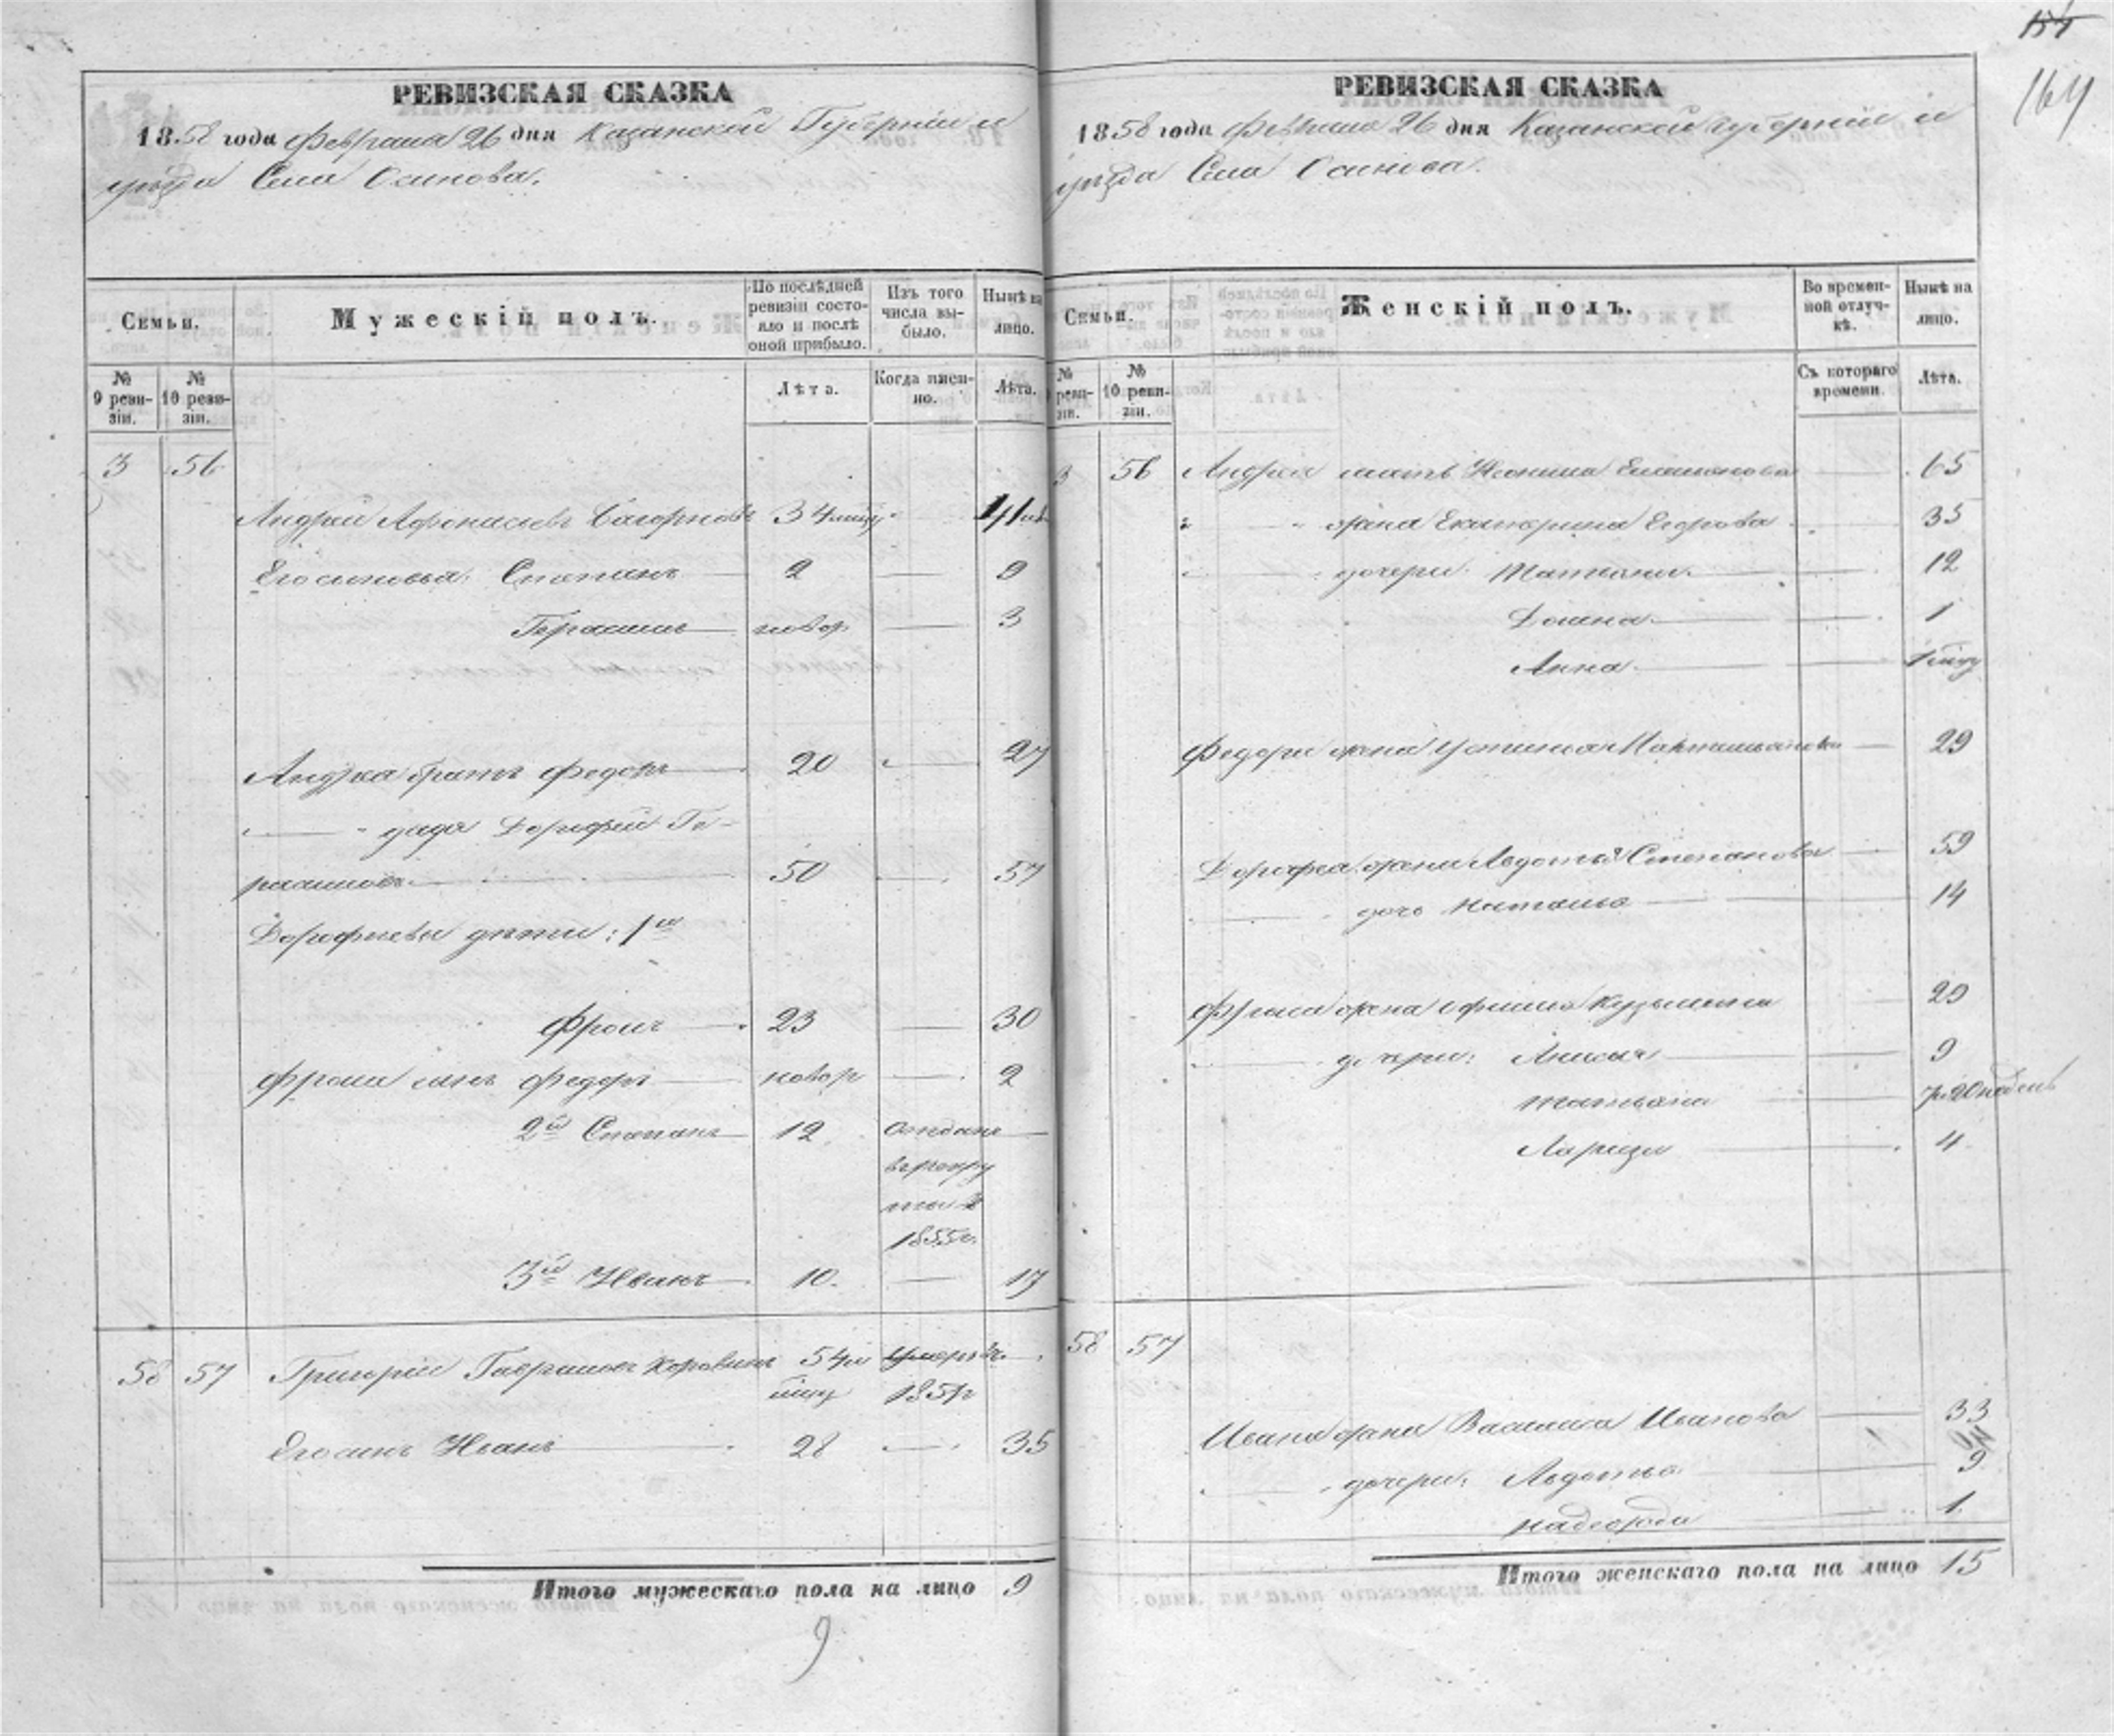 154
164
РЕВИЗСКАЯ СКАЗКА
1858 года Февраля 26 дня Казанской Губерніи и
уѣзда Села Осинова.
Семьи.
Мужескій полъ.
По послѣдней ревизіи состояло и послѣ оной прибыло.
Изъ того числа выбыло.
Нынѣ на лицо.
№ 9 ревизіи.
№ 10 ревизіи.
Лѣта.
Когда именно.
Лѣта.
3 56
Андрей Афонасьевъ 34 41
Его сыновья: Степанъ 2 9
Герасимъ новор 3
Андрея братъ Федоръ 20 27
дядя Дорофей Ге-
расимовъ 50 57
Дорофеевы дѣти: 1й
Фролъ 23 30
Фрола сынъ Федоръ новор 2
2й Степанъ 12 отданъ
въ рекру
ты в
1855г.
3й Иванъ 10. 17
58 57 Григорій Гавриловъ 54 умеръ въ
1851г
Его сынъ Иванъ 28 35
Итого мужескаго пола на лицо 9
9
РЕВИЗСКАЯ СКАЗКА
1858 года Февраля 26 дня Казанской Губерніи и
уѣзда Села Осинова.
Семьи.
Женскій полъ.
Во временной отлучкѣ.
Нынѣ на лицо.
№ ревизіи.
№ 10 ревизіи.
Съ котораго времени.
Лѣта.
3 56 Андрея мать 65
жена Екатерина Егорова 35
дочери: Татьяна 12
Домна 1
Анна
Федора жена Устинья 29
Дорофея жена Авдотья Степанова 59
дочь Наталья 14
Фрола жена Офимья Кузьмина 29
дочери: Анисья 9
Татьяна 20 недель
Лариса 4
58 57
Ивана жена Василиса Иванова 33
дочери: Авдотья 9
Надежда 1
Итого женскаго пола на лицо 15